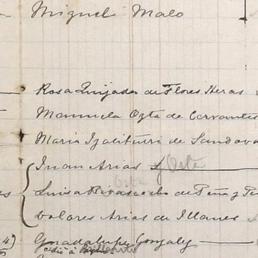 Miguel Malo
Rosa Quijada de Flores Heras
Manuela Ozta de Cervantes
Maria Izaliturri de Sandova
Juan Arias
Luisa de Peña y
Dolores Arias de Illanes
Guadalupe Gonzalez